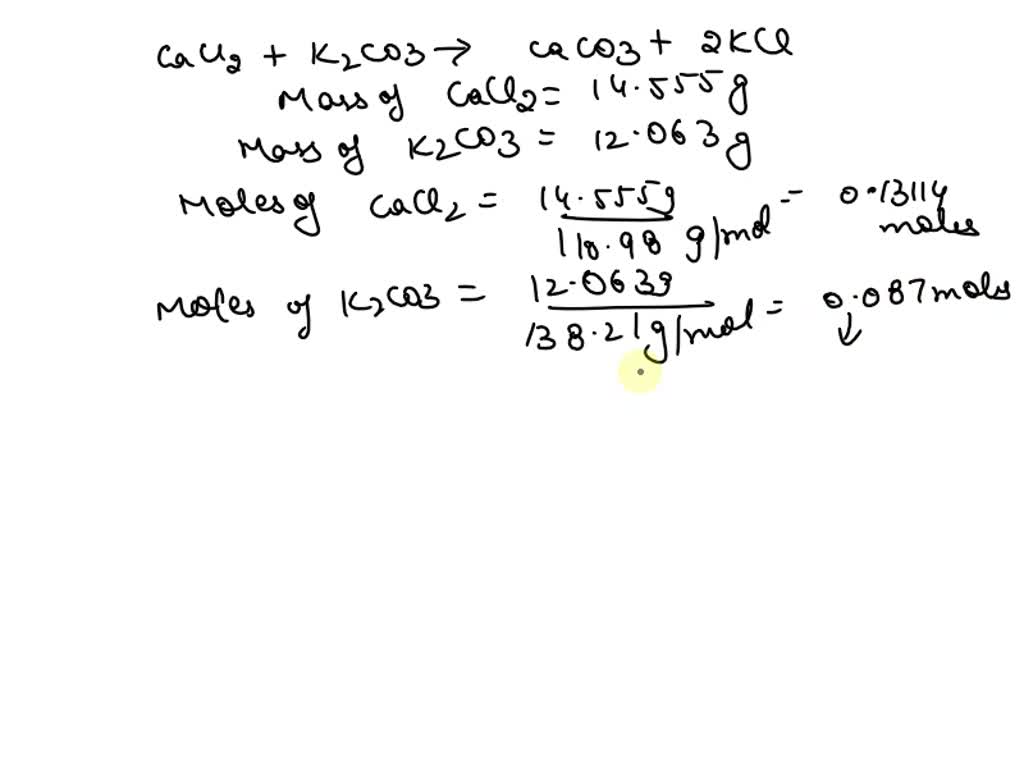 CaCl2 + K2CO3 → CaCO3 + 2KCl
Mass of CaCl2 = 14.555g
Mass of K2CO3 = 12.063g
Moles of CaCl2 = 14.555g / 110.98 g/mol = 0.13114 moles
Moles of K2CO3 = 12.063g / 138.21g/mol = 0.087 mols
↓